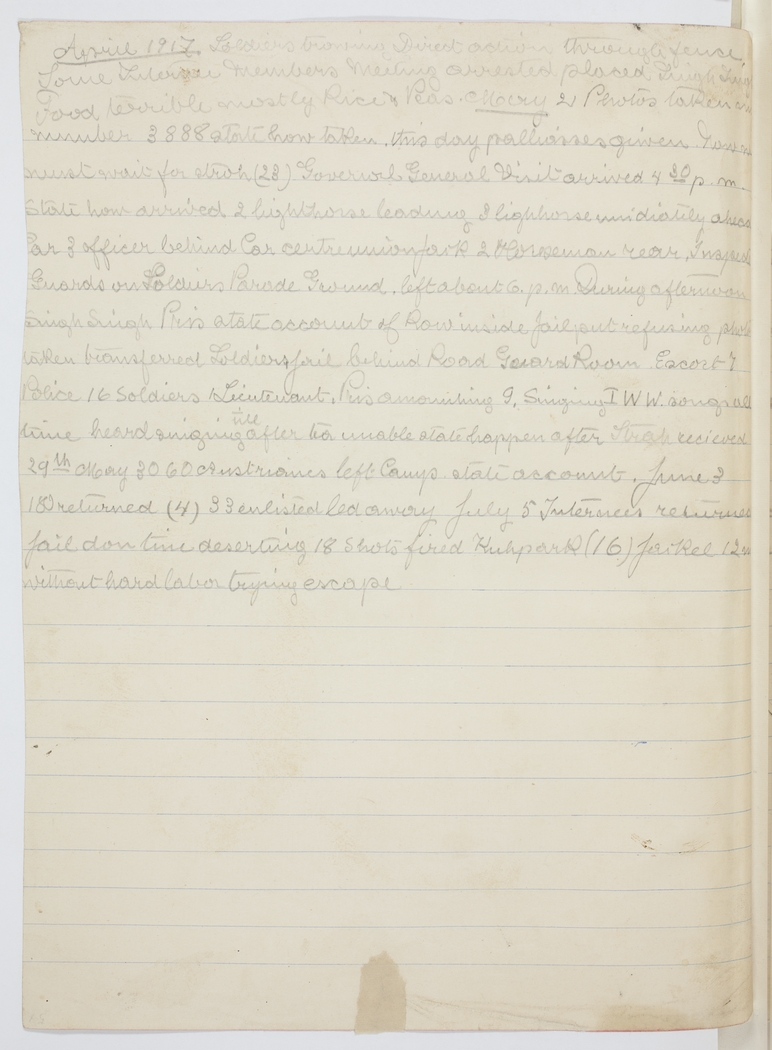 April 1917. Soldiers Direct action through fence,
Some Members Meeting arrested placed Singh Sing
Food terrible mostly Rice & Peas. Mery 2 Photos taken
number 3888 state how taken, this day palliasses given.
must wait for stroh (23) Governol General Visit arrived 4 30 p. m.
State how arrived 2 lighthorse leading 1 lighorse imidiatly ahead
Car 3 officer behind Car centre union jack 2 Horseman rear,
Guards on Soldiers Parade Ground, left about 6. p. m During afternoon
Singh Singh Pris state account of Row inside jail, put refusing photo
taken transferred Soldiers jail behind Road Guard Room Escort 7
Police 16 Soldiers 1 Lieutenant. Pris amounting 9, Singing I W W. songs all
time heard singing till after tea unable state happen after Stroh recieved
29th May 30 60 Austrianes left Camp state account. June 3
returned (4) 33 enlisted led away July 5 Internees returned
jail don time deserting 18 Shots fired (16) 12
without hard labor trying escape